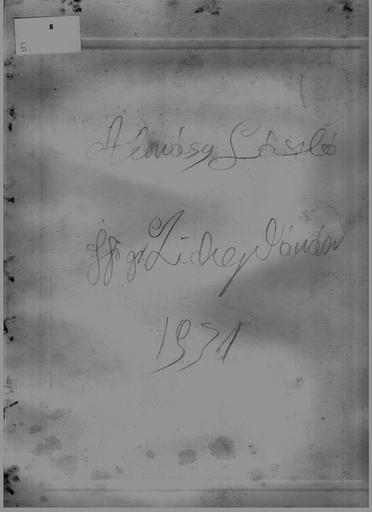 8
5.
Almásy László
gr Zichy Nándor
1931